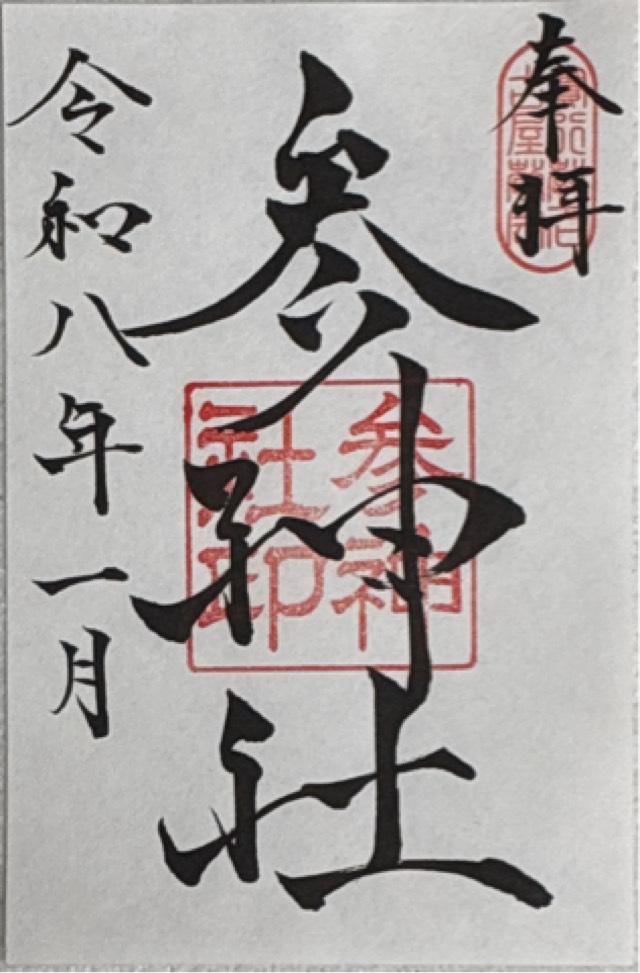 奉拝
参神社
参神
社印
令和八年一月